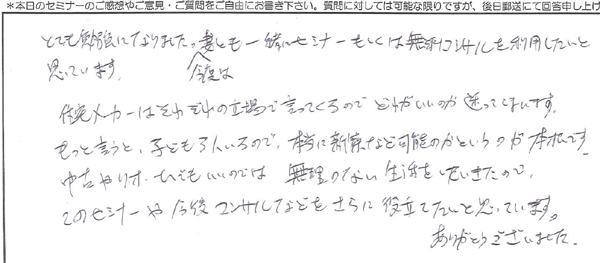 *本日のセミナーのご感想やご意見・ご質問をご自由にお書き下さい。質問に対しては可能な限りですが、後日郵送にて回答申し上げ
とても勉強になりました。妻とも一緒にセミナーもしくは無料コンサルを利用したいと
今度は
思っています。
住宅メーカーはそれぞれの立場で言ってくるのでどれがいいのか迷ってしまいます。
もっと言うと、子ども3人いるので、本当に新築など可能なのかというのが本松です
中古やリオームでもいいのでは 無理のない生活をしたので、
このセミナーや今後コンサルなどをさらに役立てたいと思っています。
ありがとうございました。